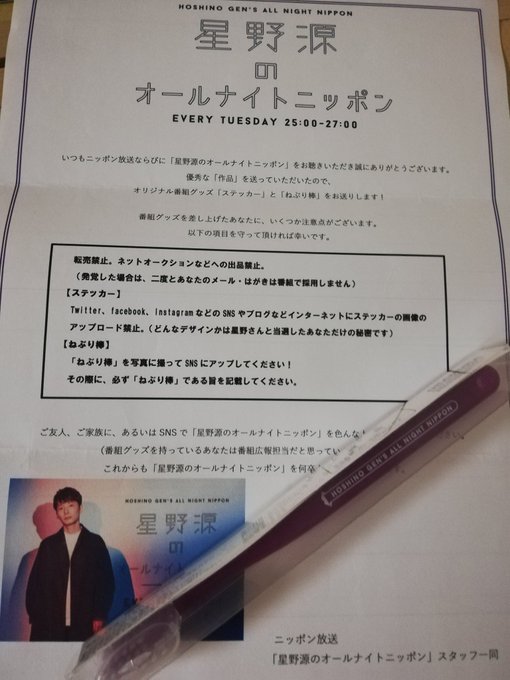 HOSHINO GEN'S ALL NIGHT NIPPON
星野源
の
オールナイトニッポン
EVERY TUESDAY 25:00-27:00
いつもニッポン放送ならびに「星野源のオールナイトニッポン」をお聴きいただき誠にありがとうございます。
優秀な「作品」を送っていただいたので、
オリジナル番組グッズ「ステッカー」と「ねぶり棒」をお送りします！
番組グッズを差し上げたあなたに、いくつか注意点がございます。
以下の項目を守って頂ければ幸いです。
転売禁止。ネットオークションなどへの出品禁止。
（発覚した場合は、二度とあなたのメール・はがきは番組で採用しません）
【ステッカー】
Twitter、facebook、Instagramなどの SNS やブログなどインターネットにステッカーの画像の
アップロード禁止。（どんなデザインかは星野さんと当選したあなただけの秘密です）
【ねぶり棒】
「ねぶり棒」を写真に撮って SNS にアップしてください！
その際に、必ず「ねぶり棒」である旨を記載してください。
ご友人、ご家族に、あるいは SNS で「星野源のオールナイトニッポン」を色んな
さい。
（番組グッズを持っているあなたは番組広報担当だと思ってい
これからも「星野源のオールナイトニッポン」を何卒
HOSHINO GEN'S ALL NIGHT NIPPON
HOSHINO GEN'S ALL NIGHT NIPPON
星野源
の
オールナイト
ニッポン放送
「星野源のオールナイトニッポン」スタッフ一同